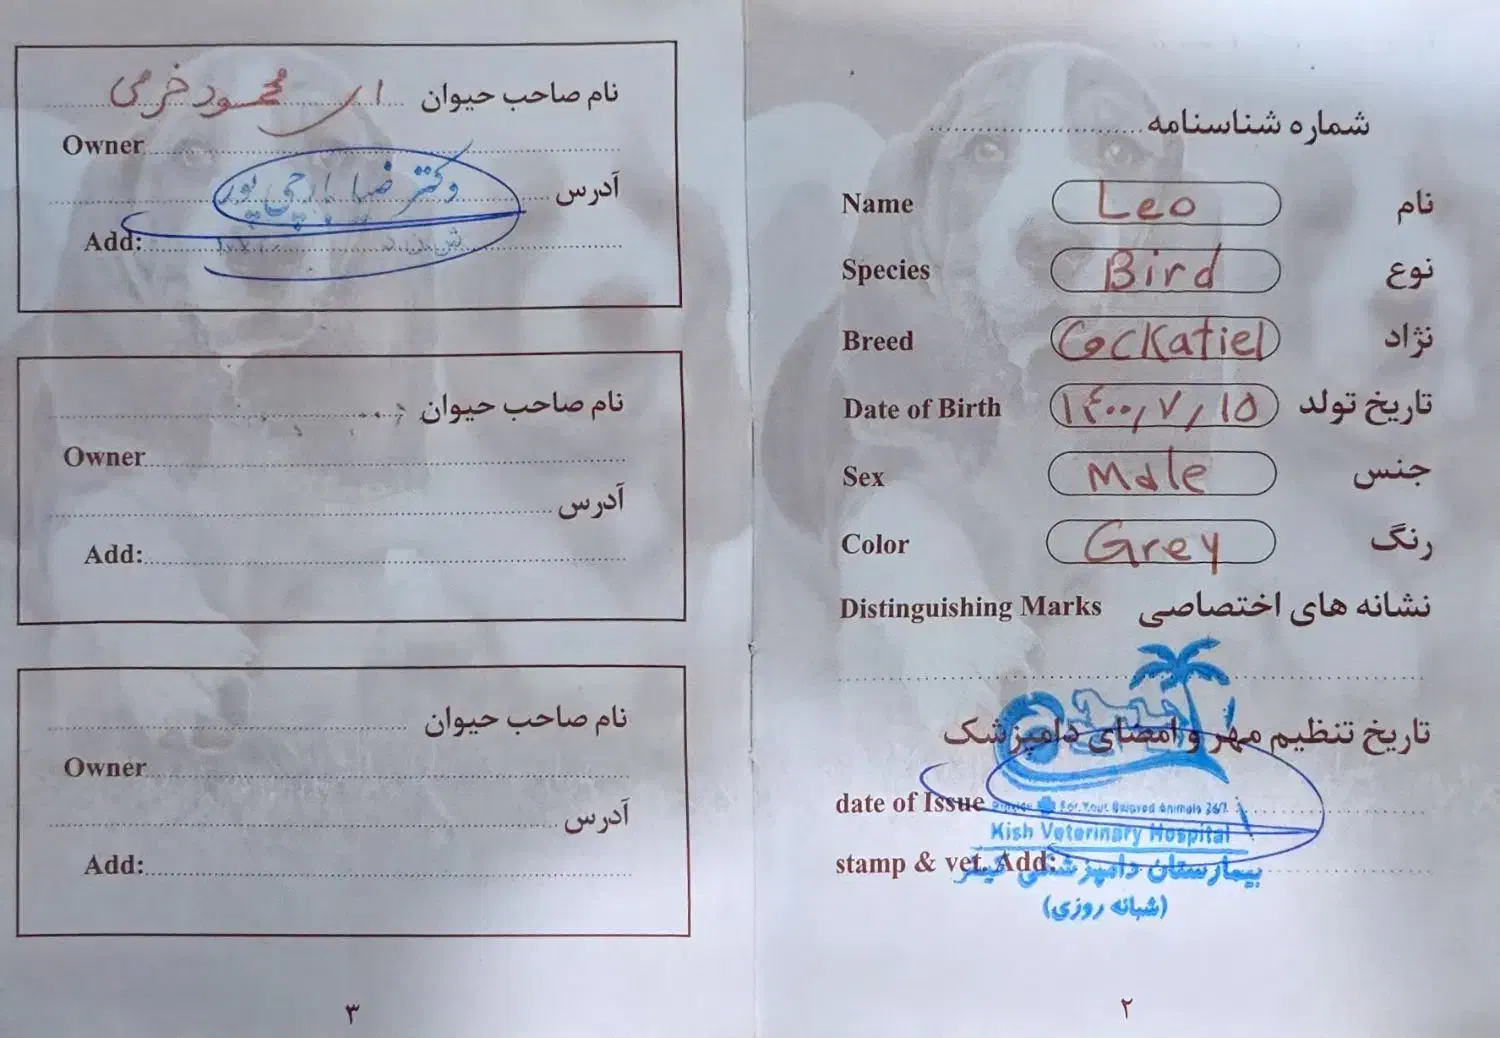 شماره شناسنامه
Name Leo نام
Species Bird نوع
Breed Cockatiel نژاد
Date of Birth ۱۴۰۰/۷/۱۵ تاریخ تولد
Sex Male جنس
Color Grey رنگ
Distinguishing Marks نشانه های اختصاصی
تاریخ تنظیم مهر و امضای دامپزشک
date of Issue
For Your Animals 24/7
Kish Veterinary Hospital
stamp & vet. Add:
بیمارستان دامپزشکی کیش
(شبانه روزی)
۲
نام صاحب حیوان محمود خرمی
Owner
آدرس
دکتر ضیا پور
Add:
نام صاحب حیوان
Owner
آدرس
Add:
نام صاحب حیوان
Owner
آدرس
Add:
۳